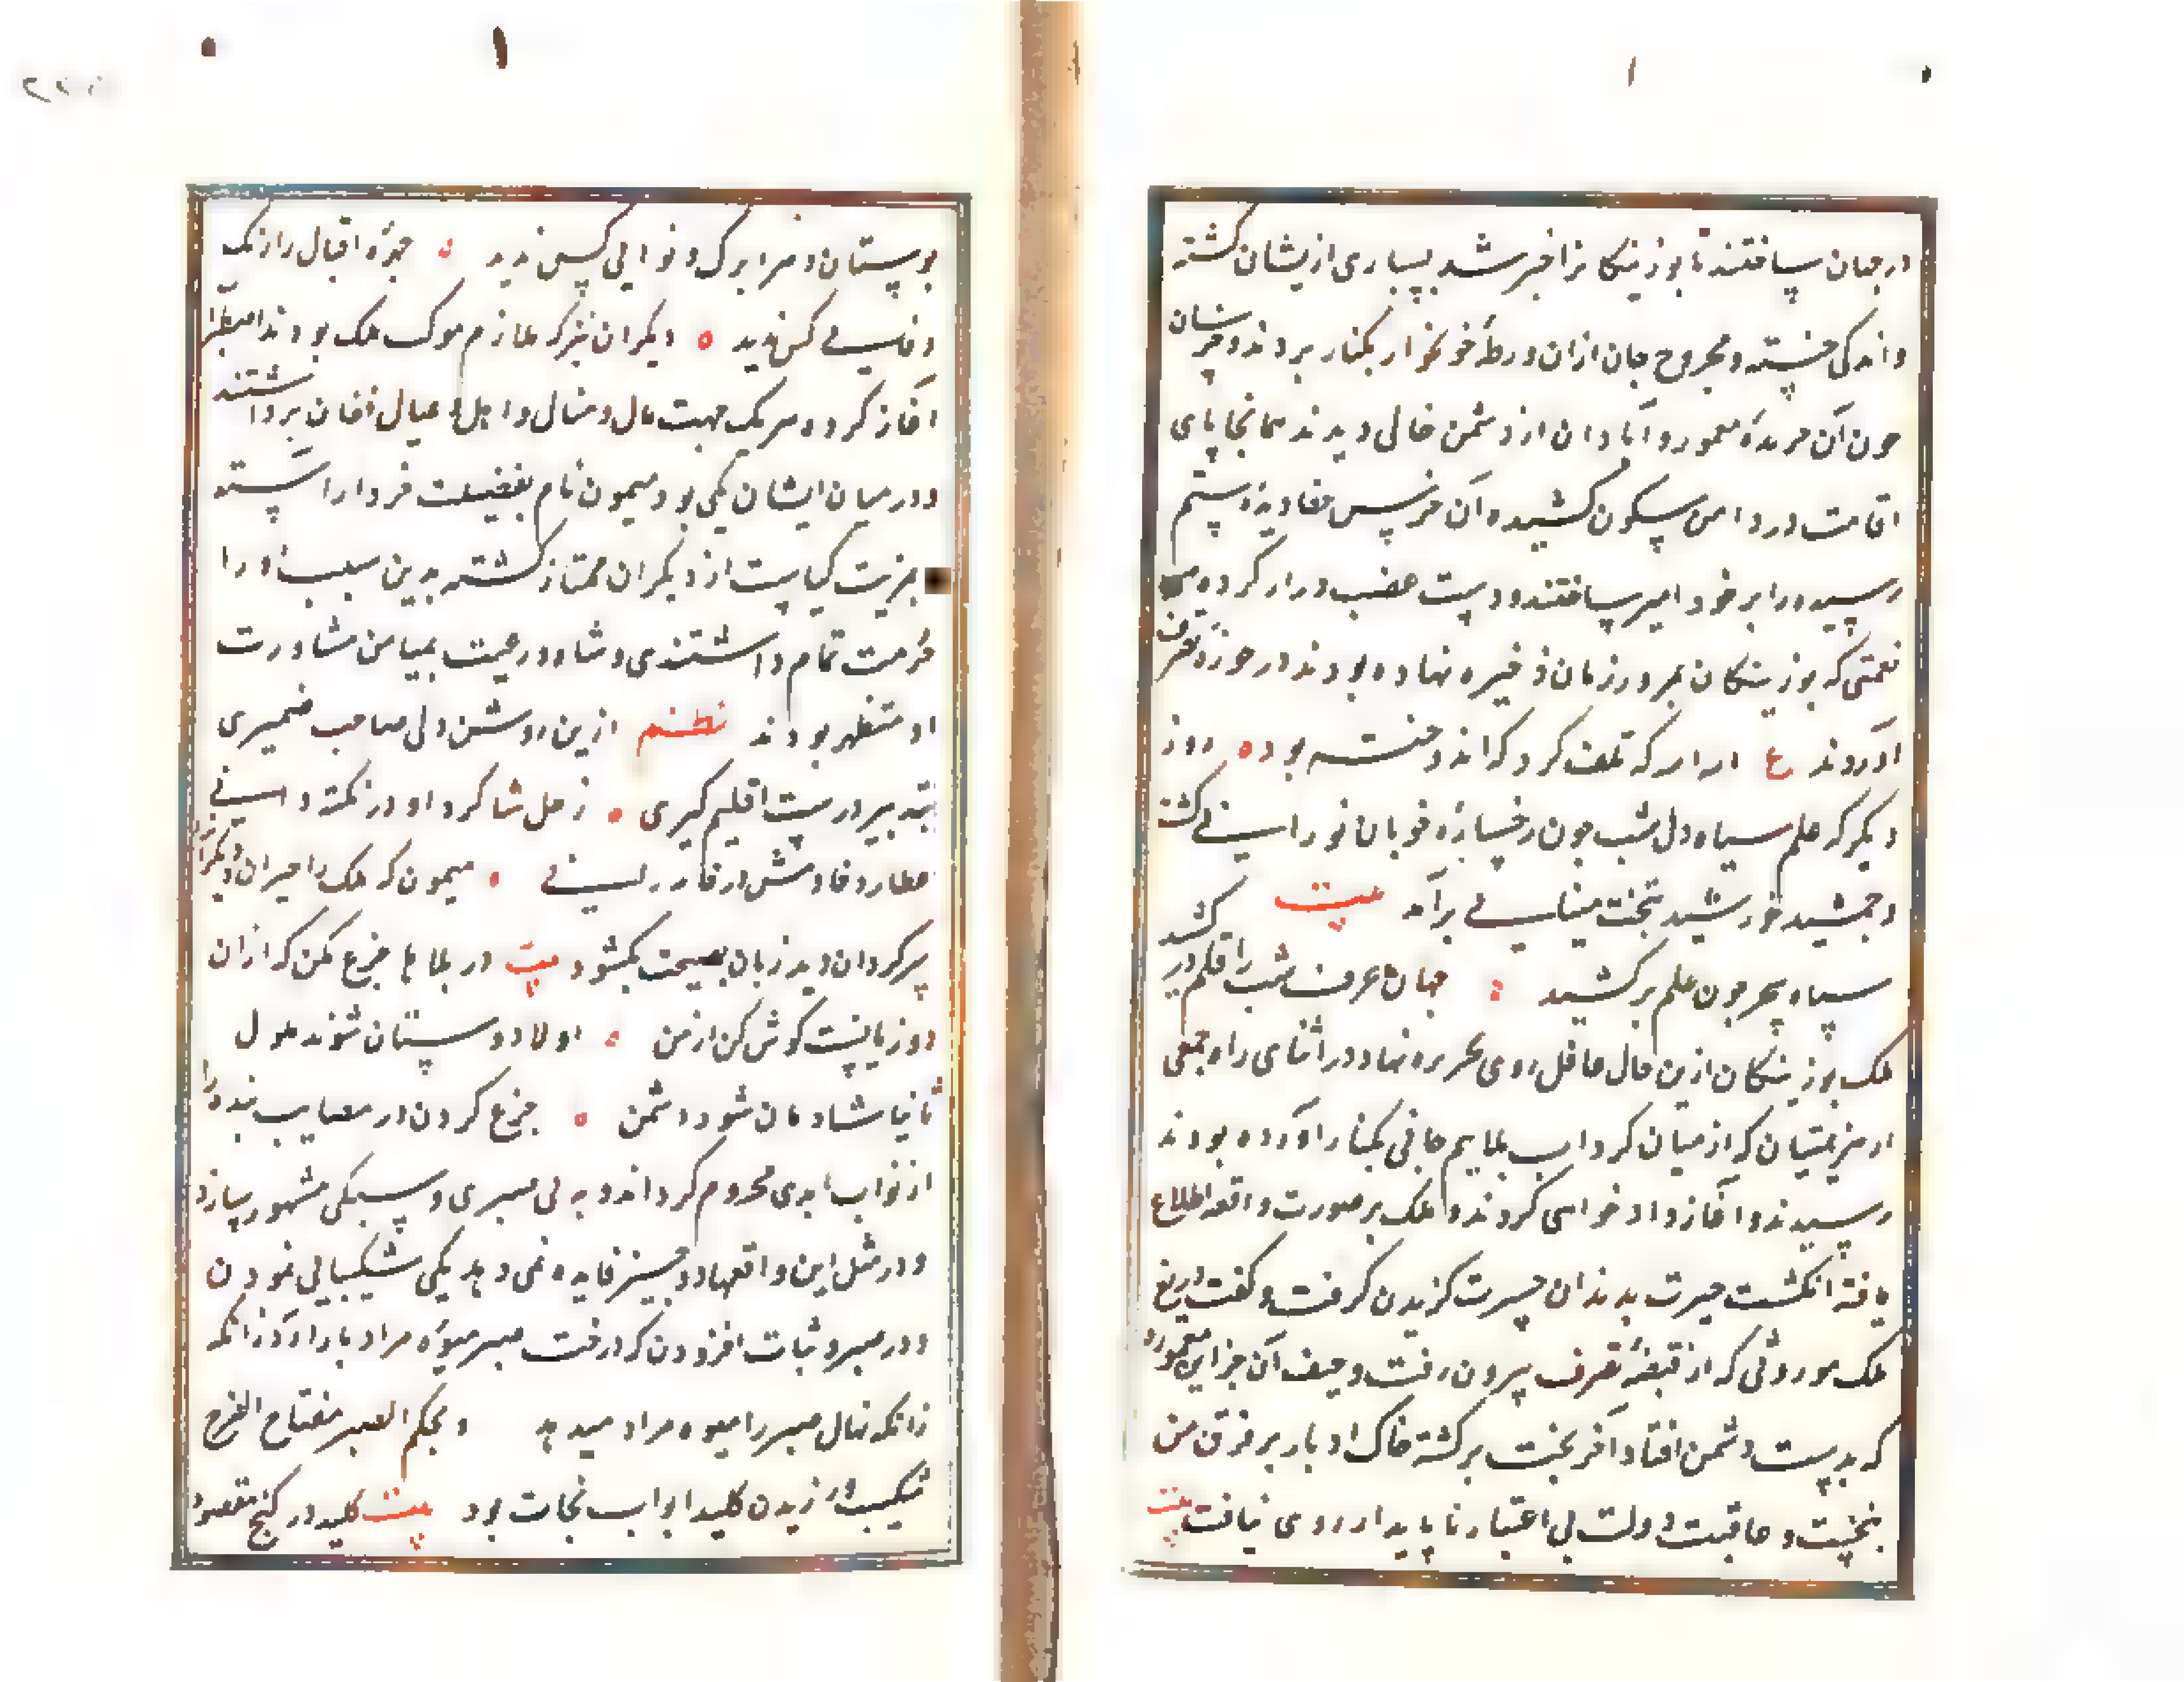 در جهان ساختند تا بوزینکانرا خبر شد بسیاری ازیشان کشته
و اندکی خسته و مجروح جان ازان ورطهٔ خونخوار بکنار بردند و خرسان
چون آن جزیرهٔ معمور و آبادان از دشمن خالی دیدند همانجا پای
اقامت در دامن سکون کشیده آن خرس جفا دیدهٔ ستم
رسیده را بر خود امیر ساختند و دست غصب دراز کرده
نعمتی که بوزینکان بمرور زمان ذخیره نهاده بودند در حوزهٔ تصرف
آوردند ع که تلف کرد که اندوخته بود روز
دیکر که علم سیاه دل شب چون رخسارهٔ خوبان نورانی کشت
و جمشید خورشید بتخت مینایی برآمد بیت
سپاه سحر چون علم برکشید جهان حرف شب را قلم در کشید
ملک بوزینکان ازین حال غافل روی بجزیره نهاد و در اثنای راه جمعی
از هزیمتیان که از میان کرداب بلا نیم جانی بکنار آورده بودند
رسیدند و آغاز دادخواهی کردند و ملک بر صورت واقعه اطلاع
یافته انکشت حیرت بدندان حسرت کزیدن کرفت و کفت دریغ
ملک موروثی که از قبضهٔ تصرف بیرون رفت و حیف آن خزاین معمور
که بدست دشمن افتاد آخر بخت برکشته خاک ادبار بر فرق من
بیخت و عاقبت دولت بی اعتبار ناپایدار روی بتافت بیت
بوستان دهر را برک و نوایی کس ندید چهرهٔ اقبال را رنک
وفایی کس ندید دیکران نیز که ملازم موکب ملک بودند اضطراب
آغاز کرده هر یک جهت مال و منال و اهل و عیال فغان برداشتند
و در میان ایشان یکی بود میمون نام بفضیلت خرد آراسته
و بمزیت کیاست از دیکران ممتاز کشته بدین سبب او را
حرمت تمام داشتندی و شاه و رعیت بمیامن مشاورت
او مستظهر بودند نظم ازین روشن دلی صاحب ضمیری
بتدبیر درست اقلیم کیری زحل شاکرد او در نکته دانی
عطارد خادمش در میمون که ملک را حیران و دیکرانرا
سرکردان دید زبان نصیحت بکشود بیت در بلاها جزع مکن که ازان
دو زیانست کوش کن از من اولا دوستان شوند ملول
ثانیا شادمان شود دشمن جزع کردن در مصایب بنده را
از ثواب ابدی محروم کرداند و به بی صبری و سبکی مشهور سازد
و در مثل این واقعها دو چیز فایده نمی دهد یکی شکیبایی نمودن
و در صبر و ثبات افزودن که درخت صبر میوهٔ مراد بار آورد زانکه
زانکه نهال صبر را میوه مراد میدهد و بحکم الصبر مفتاح الفرج
شکیب ورزیدن کلید ابواب نجات بود بیت کلید در کنج مقصود